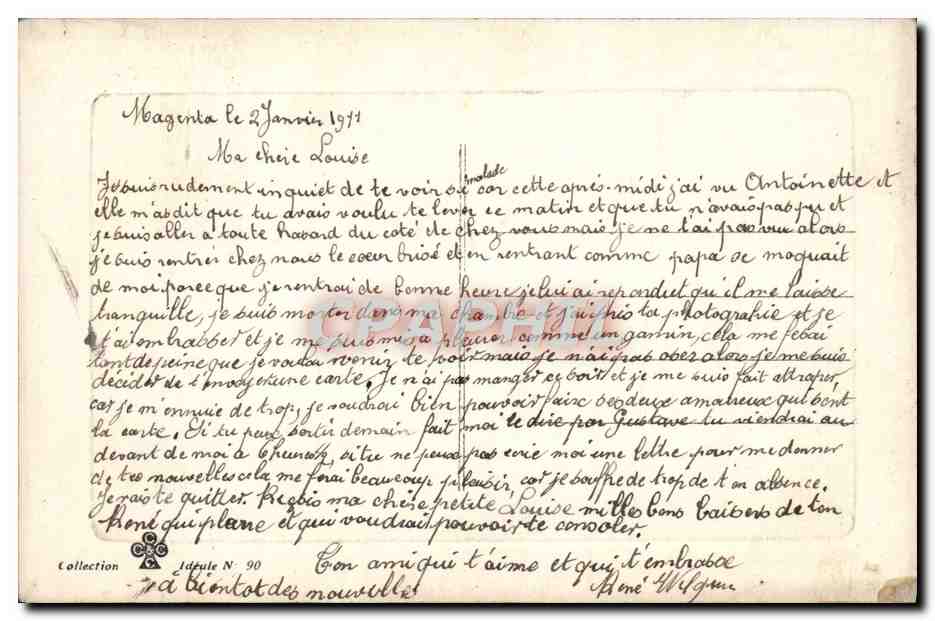 Magenta le 2 Janvier 1911
Ma chère Louise
Je suis rudement inquiet de te voir si malade car cette après-midi j'ai vu Antoinette et
elle m'as dit que tu avais voulu te lever ce matin et que tu n'avais pas pu et
je suis aller à toute hasard du coté de chez vous mais je ne t'ai pas vu alors
je suis rentrer chez nous le coeur brisé et en rentrant comme papa se moquait
de moi parce que je rentrai de bonne heure je lui ai répondu qu'il me laisse
tranquille, je suis monter dans ma chambre et j'ai pris ta photographie et je
t'ai embrasser et je me suis mis à pleurer comme un gamin, cela me fesai
tant de peine que je voulai venir te voir mais je n'ai pas oser alors je me suis
décider de t'envoyer une carte. Je n'ai pas manger ce soir et je me suis fait attraper,
car je m'ennuie de trop, je voudrai bien pouvoir faire ses deux amoureux qui sont
la carte. Si tu peux sortir demain fait moi le dire par Gustave tu viendrai au
devant de moi à heures, si tu ne peux pas écrie moi une lettre pour me donner
de tes nouvelles cela me ferai beaucoup plaisir, car je souffre de trop de ton absence.
Je vais te quitter. Reçois ma chère petite Louise milles bons baisers de ton
René qui pleure et qui voudrait pouvoir te consoler.
Ton ami qui t'aime et qui t'embrasse
à bientot des nouvelles
René
CPAPHIL
CCCC
Collection Idéale N° 90